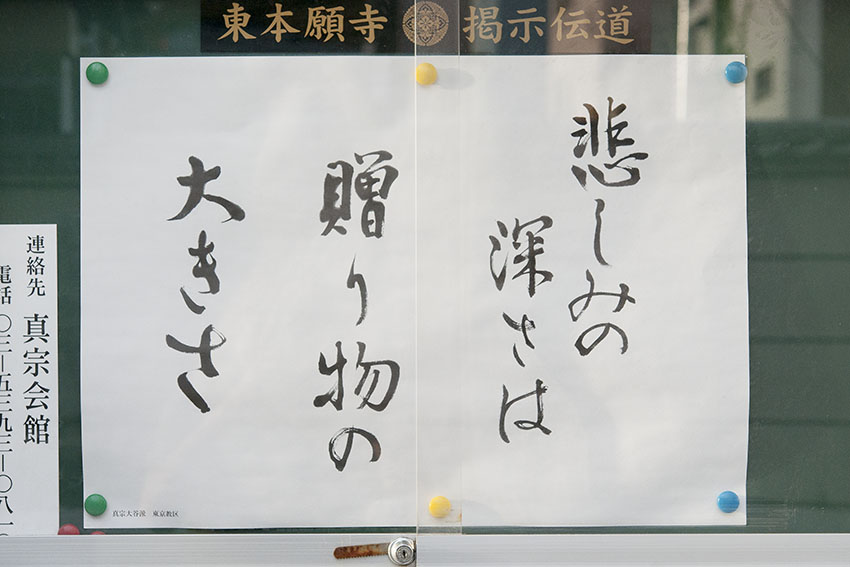 東本願寺 掲示伝道
悲しみの
深さは
贈り物の
大きさ
真宗大谷派 東京教区
連絡先 真宗会館
電話 〇三―五三九三―〇八一